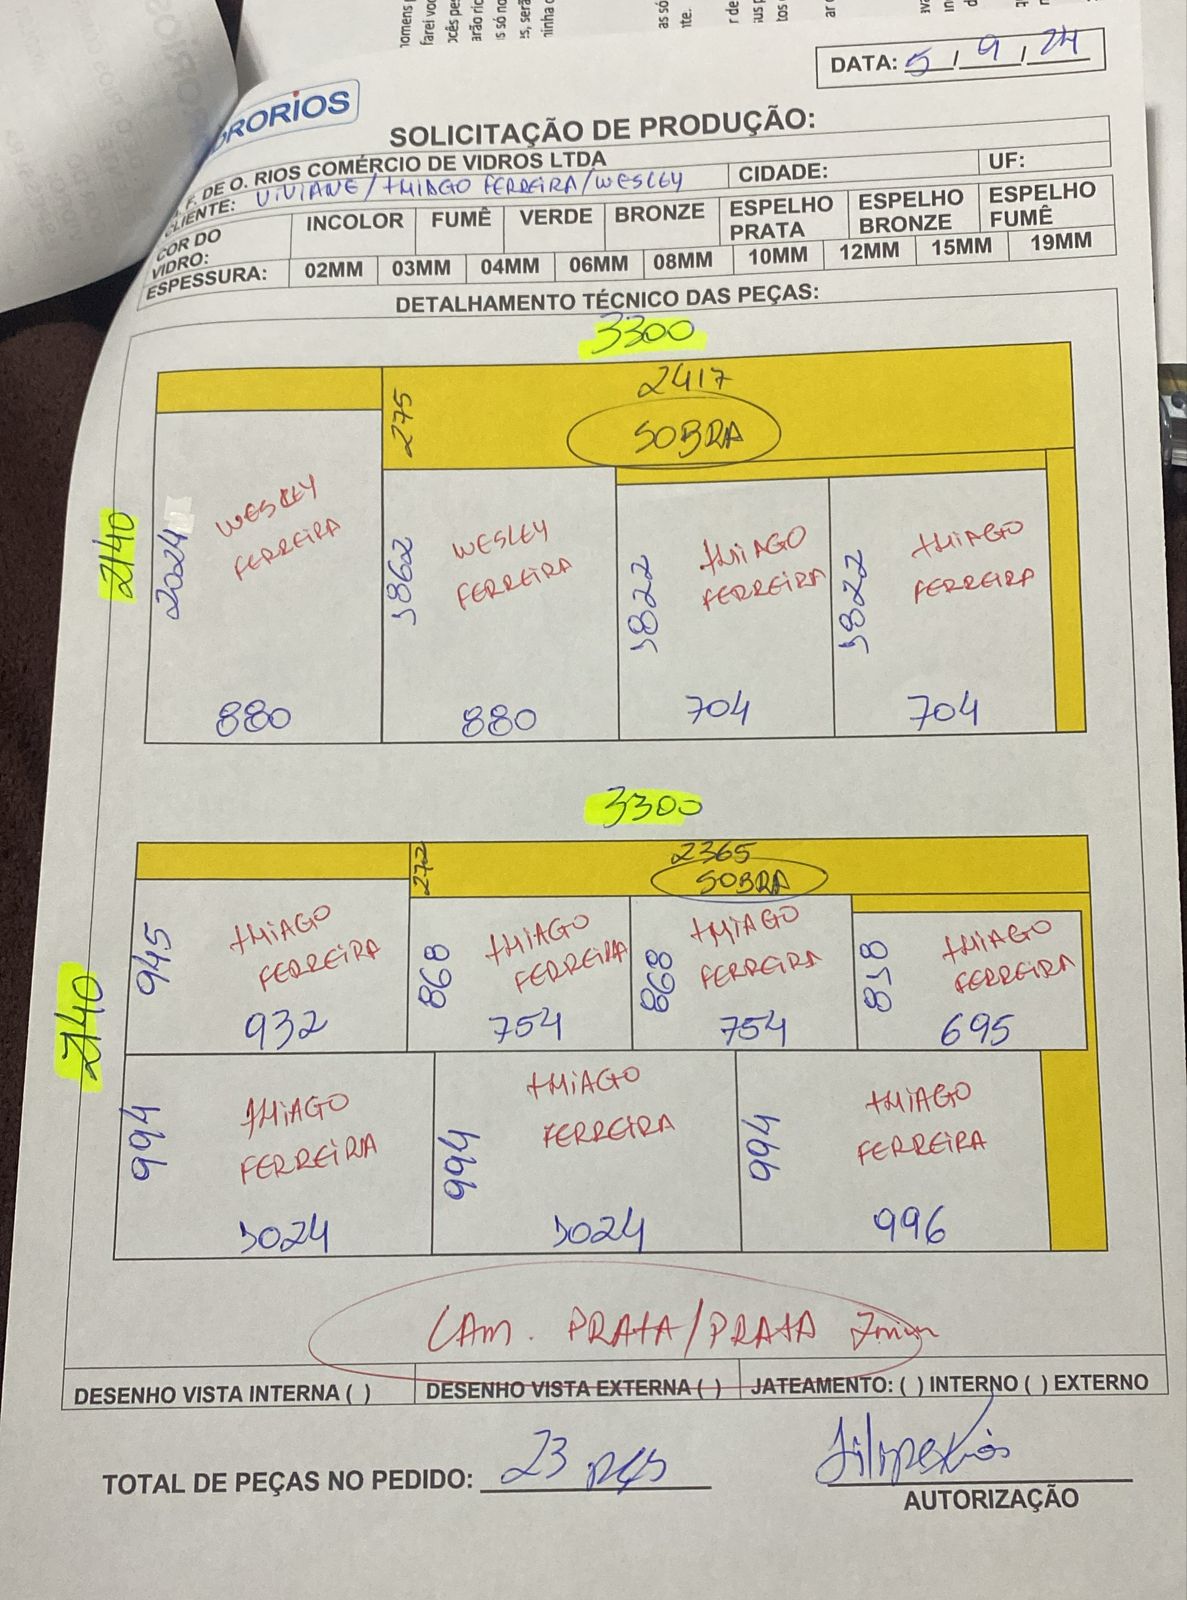 DATA: 5 / 9 / 24
SOLICITAÇÃO DE PRODUÇÃO:
F. DE O. RIOS COMÉRCIO DE VIDROS LTDA
CLIENTE: VIVIANE / THIAGO FERREIRA / WESLEY CIDADE: UF:
COR DO VIDRO: INCOLOR FUMÊ VERDE BRONZE ESPELHO PRATA ESPELHO BRONZE ESPELHO FUMÊ
ESPESSURA: 02MM 03MM 04MM 06MM 08MM 10MM 12MM 15MM 19MM
DETALHAMENTO TÉCNICO DAS PEÇAS:
3300
2140
275
2417
SOBRA
2024
WESLEY
FERREIRA
880
1862
WESLEY
FERREIRA
880
1822
THIAGO
FERREIRA
704
1822
THIAGO
FERREIRA
704
3300
2140
272
2365
SOBRA
945
THIAGO
FERREIRA
932
868
THIAGO
FERREIRA
754
868
THIAGO
FERREIRA
754
818
THIAGO
FERREIRA
695
994
THIAGO
FERREIRA
1024
994
THIAGO
FERREIRA
1024
994
THIAGO
FERREIRA
996
LAM. PRATA/PRATA 7mm
DESENHO VISTA INTERNA ( ) DESENHO VISTA EXTERNA ( ) JATEAMENTO: ( ) INTERNO ( ) EXTERNO
TOTAL DE PEÇAS NO PEDIDO: 23 pçs
AUTORIZAÇÃO